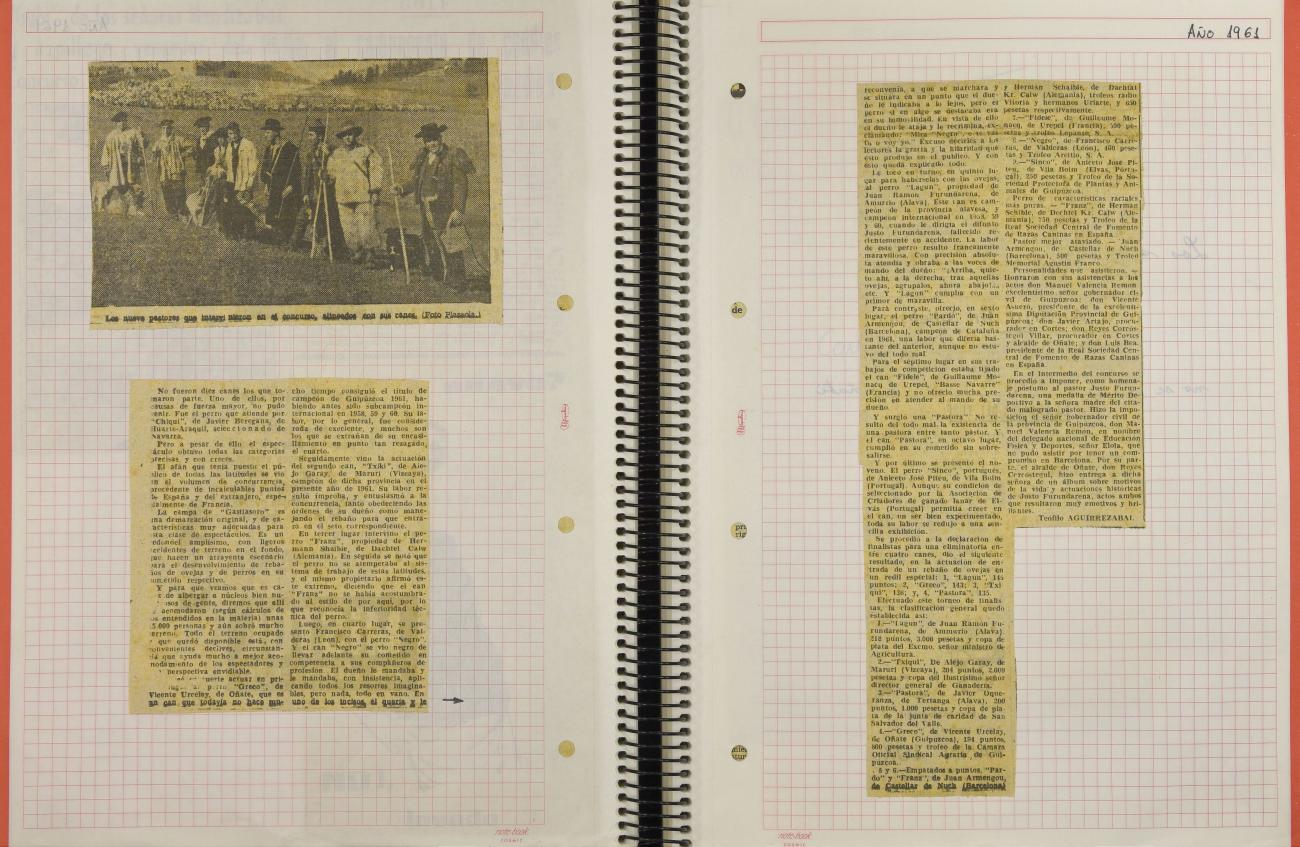 Los nueve pastores que intervinieron en el concurso, alineados con sus canes. (Foto Plazaola.)
No fueron diez canes los que to-
maron parte. Uno de ellos, por
causas de fuerza mayor, no pudo
venir. Fue el perro que atiende por
"Chiqui", de Javier Biregana, de
Huarte-Araquil, seleccionado de
Navarra.
Pero a pesar de ello el espec-
táculo obtuvo todas las categorías
precisas, y con creces.
El afán que tenía puesto el pú-
blico de todas las latitudes se vio
en el volumen de concurrencia,
procedente de incalculables puntos
de España y del extranjero, espe-
cialmente de Francia.
La campa de "Gastiasoro" es
una demarcación original, y de ca-
racterísticas muy adecuadas para
esta clase de espectáculos. Es un
redondel amplísimo, con ligeros
accidentes de terreno en el fondo,
que hacen un atrayente escenario
para el desenvolvimiento de reba-
ños de ovejas y de perros en su
cometido respectivo.
Y para que veamos que es ca-
de albergar a núcleos bien nu-
sos de gente, diremos que allí
acomodaron (según cálculos de
los entendidos en la materia) unas
5.000 personas y aún sobró mucho
terreno. Todo el terreno ocupado
que quedó disponible está, con
convenientes declives, circunstan-
cia que ayuda mucho a mejor aco-
modamiento de los espectadores y
perspectiva envidiable.
suerte actuar en pri-
lugar al perro "Greco", de
Vicente Urcelay, de Oñate, que es
un can que todavía no hace mu-
cho tiempo consiguió el título de
campeón de Guipúzcoa 1961, ha-
biendo antes sido subcampeón in-
ternacional en 1958, 59 y 60. Su la-
bor, por lo general, fue conside-
rada de excelente, y muchos son
los que se extrañan de su encasi-
llamiento en punto tan rezagado,
el cuarto.
Seguidamente vino la actuación
del segundo can, "Txiki", de Ale-
jo Garay, de Maruri (Vizcaya),
campeón de dicha provincia en el
presente año de 1961. Su labor re-
sultó ímproba, y entusiasmó a la
concurrencia, tanto obedeciendo las
órdenes de su dueño como mane-
jando el rebaño para que entra-
ra en el seto correspondiente.
En tercer lugar intervino el pe-
rro "Franz", propiedad de Her-
mann Shaible, de Dachtel Calw
(Alemania). En seguida se notó que
el perro no se atemperaba al sis-
tema de trabajo de estas latitudes,
y el mismo propietario afirmó es-
te extremo, diciendo que el can
"Franz" no se había acostumbra-
do al estilo de por aquí, por lo
que reconocía la inferioridad téc-
nica del perro.
Luego, en cuarto lugar, se pre-
sentó Francisco Carreras, de Val-
deras (León), con el perro "Negro".
Y el can "Negro" se vio negro de
llevar adelante su cometido en
competencia a sus compañeros de
profesión. El dueño le mandaba y
le mandaba, con insistencia, apli-
cando todos los resortes imagina-
bles, pero nada, todo en vano. En
uno de los incisos, él quería y le
AÑO 1961
reconvenía, a que se marchara y
se situara en un punto que el due-
ño le indicaba a lo lejos, pero el
perro si en algo se destacaba era
en su inmovilidad. En vista de ello
el dueño le ataja y le recrimina, ex-
clamando: "Mira "Negro", o te vas
tú o voy yo." Excuso decirles a los
lectores la gracia y la hilaridad que
esto produjo en el público. Y con
esto queda explicado todo.
Le tocó en turno, en quinto lu-
gar para habérselas con las ovejas,
al perro "Lagun", propiedad de
Juan Ramón Furundarena, de
Amurrio (Alava). Este can es cam-
peón de la provincia alavesa, y
campeón internacional en 1958, 59
y 60, cuando le dirigía el difunto
Justo Furundarena, fallecido re-
cientemente en accidente. La labor
de este perro resultó francamente
maravillosa. Con precisión absolu-
ta atendía y obraba a las voces de
mando del dueño: "¡Arriba, quie-
to ahí, a la derecha, trae aquellas
ovejas, agrúpalos, ahora abajo!...
etc. Y "Lagun" cumplía con un
primor de maravilla.
Para contraste, ofreció, en sexto
lugar, el perro "Pardo", de Juan
Armengou, de Castellar de Nuch
(Barcelona), campeón de Cataluña
en 1961, una labor que difería bas-
tante del anterior, aunque no estu-
vo del todo mal.
Para el séptimo lugar en sus tra-
bajos de competición estaba fijado
el can "Fidele", de Guillaume Mo-
nacq de Urepel, "Basse Navarre"
(Francia) y no ofreció mucha pre-
cisión en atender al mando de su
dueño.
Y surgió una "Pastora" No re-
sultó del todo mal la existencia de
una pastora entre tanto pastor. Y
el can "Pastora", en octavo lugar,
cumplió en su cometido sin sobre-
salirse.
Y por último se presentó el no-
veno. El perro "Sinco", portugués,
de Aniceto José Piteu, de Vila Boim
(Portugal). Aunque su condición de
seleccionado por la Asociación de
Criadores de ganado lanar de El-
vás (Portugal) permitía creer en
el can, un ser bien experimentado,
toda su labor se redujo a una sen-
cilla exhibición.
Se procedió a la declaración de
finalistas para una eliminatoria en-
tre cuatro canes, dio el siguiente
resultado, en la actuación de en-
trada de un rebaño de ovejas en
un redil especial: 1, "Lagun", 145
puntos; 2, "Greco", 143; 3, "Txi-
qui", 136; y, 4, "Pastora", 135.
Efectuado este torneo de finalis-
tas, la clasificación general quedó
establecida así:
1.—"Lagun", de Juan Ramón Fu-
rundarena, de Amurrio (Alava).
218 puntos, 3.000 pesetas y copa de
plata del Excmo. señor ministro de
Agricultura.
2.—"Txiqui", De Alejo Garay, de
Maruri (Vizcaya), 204 puntos, 2.000
pesetas y copa del ilustrísimo señor
director general de Ganadería.
3.—"Pastora", de Javier Oque-
ranza, de Tertanga (Alava), 200
puntos, 1.000 pesetas y copa de pla-
ta de la junta de caridad de San
Salvador del Valle.
4.—"Greco", de Vicente Urcelay,
de Oñate (Guipúzcoa), 194 puntos,
800 pesetas y trofeo de la Cámara
Oficial Sindical Agraria de Gui-
púzcoa.
5 y 6.—Empatados a puntos, "Par-
do" y "Franz", de Juan Armengou,
de Castellar de Nuch (Barcelona)
y Hermán Schaible, de Dachtal
Kr. Calw (Alemania), trofeos radio
Vitoria y hermanos Uriarte, y 650
pesetas respectivamente.
7.—"Fidele", de Guillaume Mo-
nacq, de Urepel (Francia), 500 pe-
setas y trofeo Lepanto, S. A.
8.—"Negro", de Francisco Carre-
ras, de Valderas (León), 400 pese-
tas y Trofeo Areitio, S. A.
9.—"Sinco", de Aniceto José Pi-
teu, de Vila Boim (Elvas, Portu-
gal), 250 pesetas y Trofeo de la So-
ciedad Protectora de Plantas y Ani-
males de Guipúzcoa.
Perro de características raciales
más puras. — "Franz", de Hermán
Schible, de Dochtel Kr. Calw (Ale-
mania), 750 pesetas y Trofeo de la
Real Sociedad Central de Fomento
de Razas Caninas en España.
Pastor mejor ataviado. — Juan
Armengou, de Castellar de Nuch
(Barcelona), 500 pesetas y Trofeo
Memorial Agustín Franco.
Personalidades que asistieron. —
Honraron con sus asistencias a los
actos don Manuel Valencia Remon
excelentísimo señor gobernador ci-
vil de Guipúzcoa; don Vicente
Asuero, presidente de la excelentí-
sima Diputación Provincial de Gui-
púzcoa; don Javier Artajo, procu-
rador en Cortes; don Reyes Corcós-
tegui Villar, procurador en Cortes
y alcalde de Oñate; y don Luis Bea,
presidente de la Real Sociedad Cen-
tral de Fomento de Razas Caninas
en España.
En el intermedio del concurso se
procedió a imponer, como homena-
je póstumo al pastor Justo Furun-
darena, una medalla de Mérito De-
portivo a la señora madre del cita-
do malogrado pastor. Hizo la impo-
sición el señor gobernador civil de
la provincia de Guipúzcoa, don Ma-
nuel Valencia Remon, en nombre
del delegado nacional de Educación
Física y Deportes, señor Elola, que
no pudo asistir por tener un com-
promiso en Barcelona. Por su par-
te, el alcalde de Oñate, don Reyes
Corcóstegui, hizo entrega a dicha
señora de un álbum sobre motivos
de la vida y actuaciones históricas
de Justo Furundarena, actos ambos
que resultaron muy emotivos y bri-
llantes.
Teófilo AGUIRREZABAL
note-book
note-book